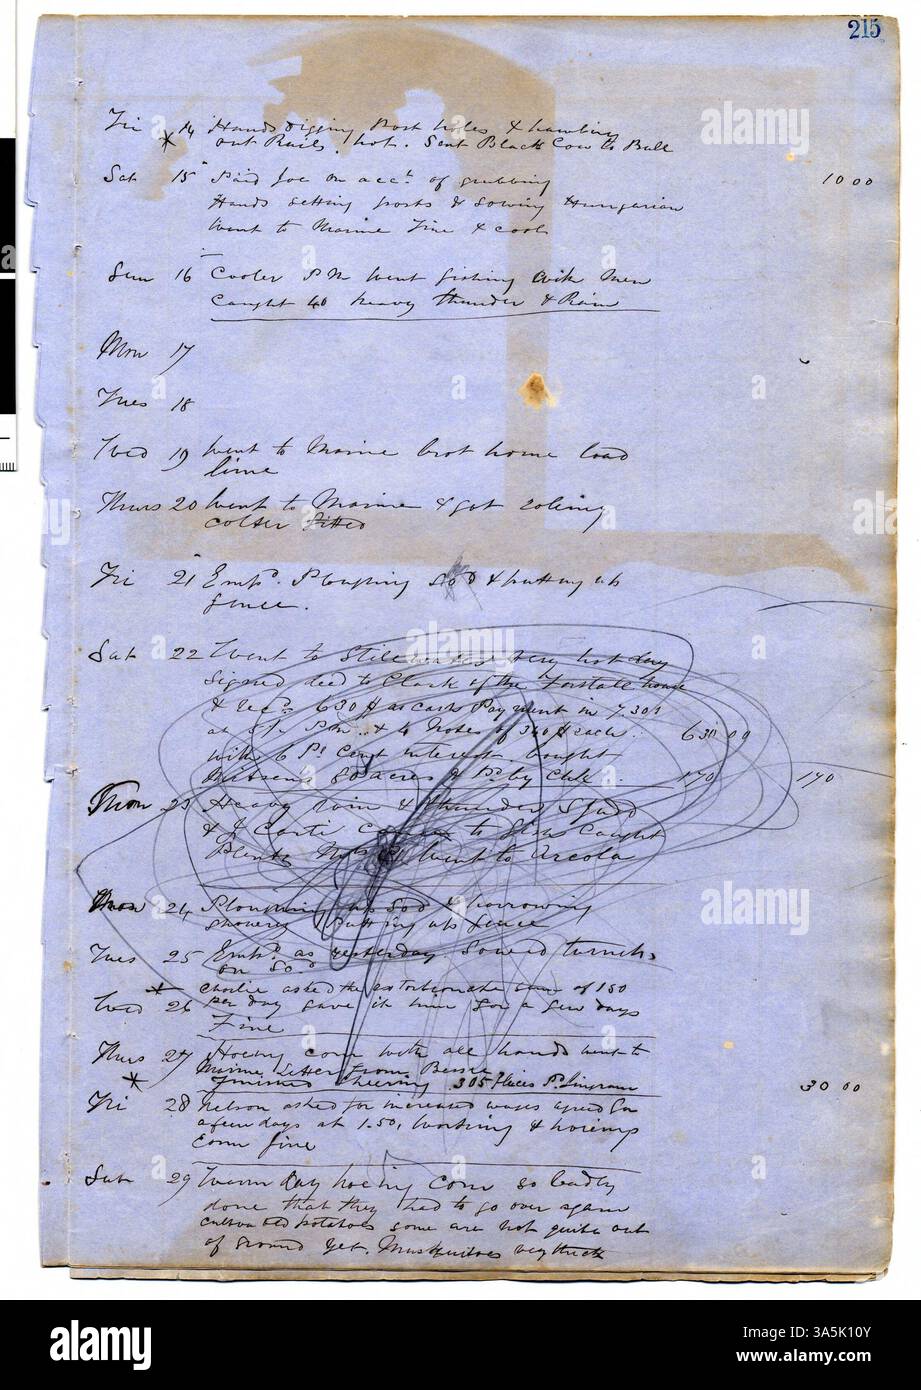 215
Fri 14 Hands digging Post holes & hawling
out Rails. hot. Sent Black Cow to Bull
Sat 15 Paid Joe on acct of grubbing 10 00
Hands setting posts & sowing Hungarian
Went to Marine Fine & cool
Sun 16 Cooler P M went fishing with men
caught 40 heavy thunder & Rain
Mon 17
Tues 18
Wed 19 Went to Marine brot home load
lime
Thurs 20 Went to Marine & got
colter fitted
Fri 21 Empd. Ploughing Sod & putting up
fence.
Sat 22 Went to Stillwater very hot day
Signed deed to Clark of the house
& recd 630 $ as cash Payment in 7.30s
at & 4 Notes of each. 630 00
with 6 Pr Cent interest. bought
80 acres of 170 170
23 Heavy rain & thunder
& to caught
Went to Arcola
Mon 24 Ploughing up Sod & harrowing
showery Putting up fence
Tues 25 Empd as yesterday. Sowed turnips
on Sod
Charlie asked the sum of 1.50
Wed 26 per day gave it him for a few days
Fine
Thurs 27 Hoeing corn with all hands went to
Marine. Letter from Bessie
Finished Shearing 305 fleeces Pd Ingram 30 00
Fri 28 Nelson asked for increased wages agreed for
a few days at 1.50, Working & hoeing
Corn fine
Sat 29 Warm day hoeing corn so badly
done that they had to go over again
cultivated potatoes some are not quite out
of ground yet. Musquitoes very thick
alamy
Image ID: 3A5K10Y
www.alamy.com